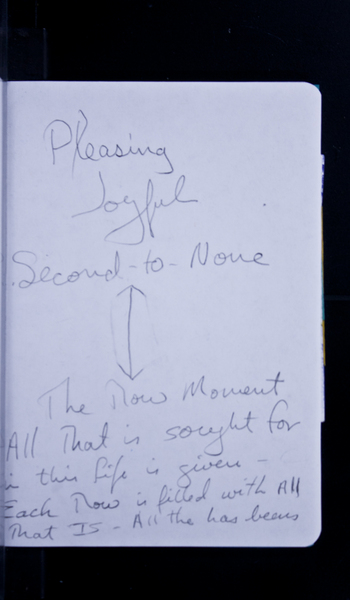 Pleasing
Joyful
Second-to-None
The Now Moment
All That is sought for
in this life is given -
Each Now is filled with All
That IS - All the has beens